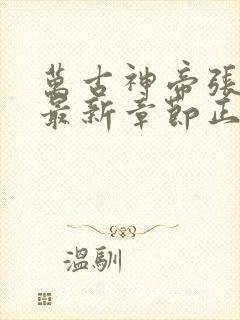 萬古神帝張
最新章節正
溫馴